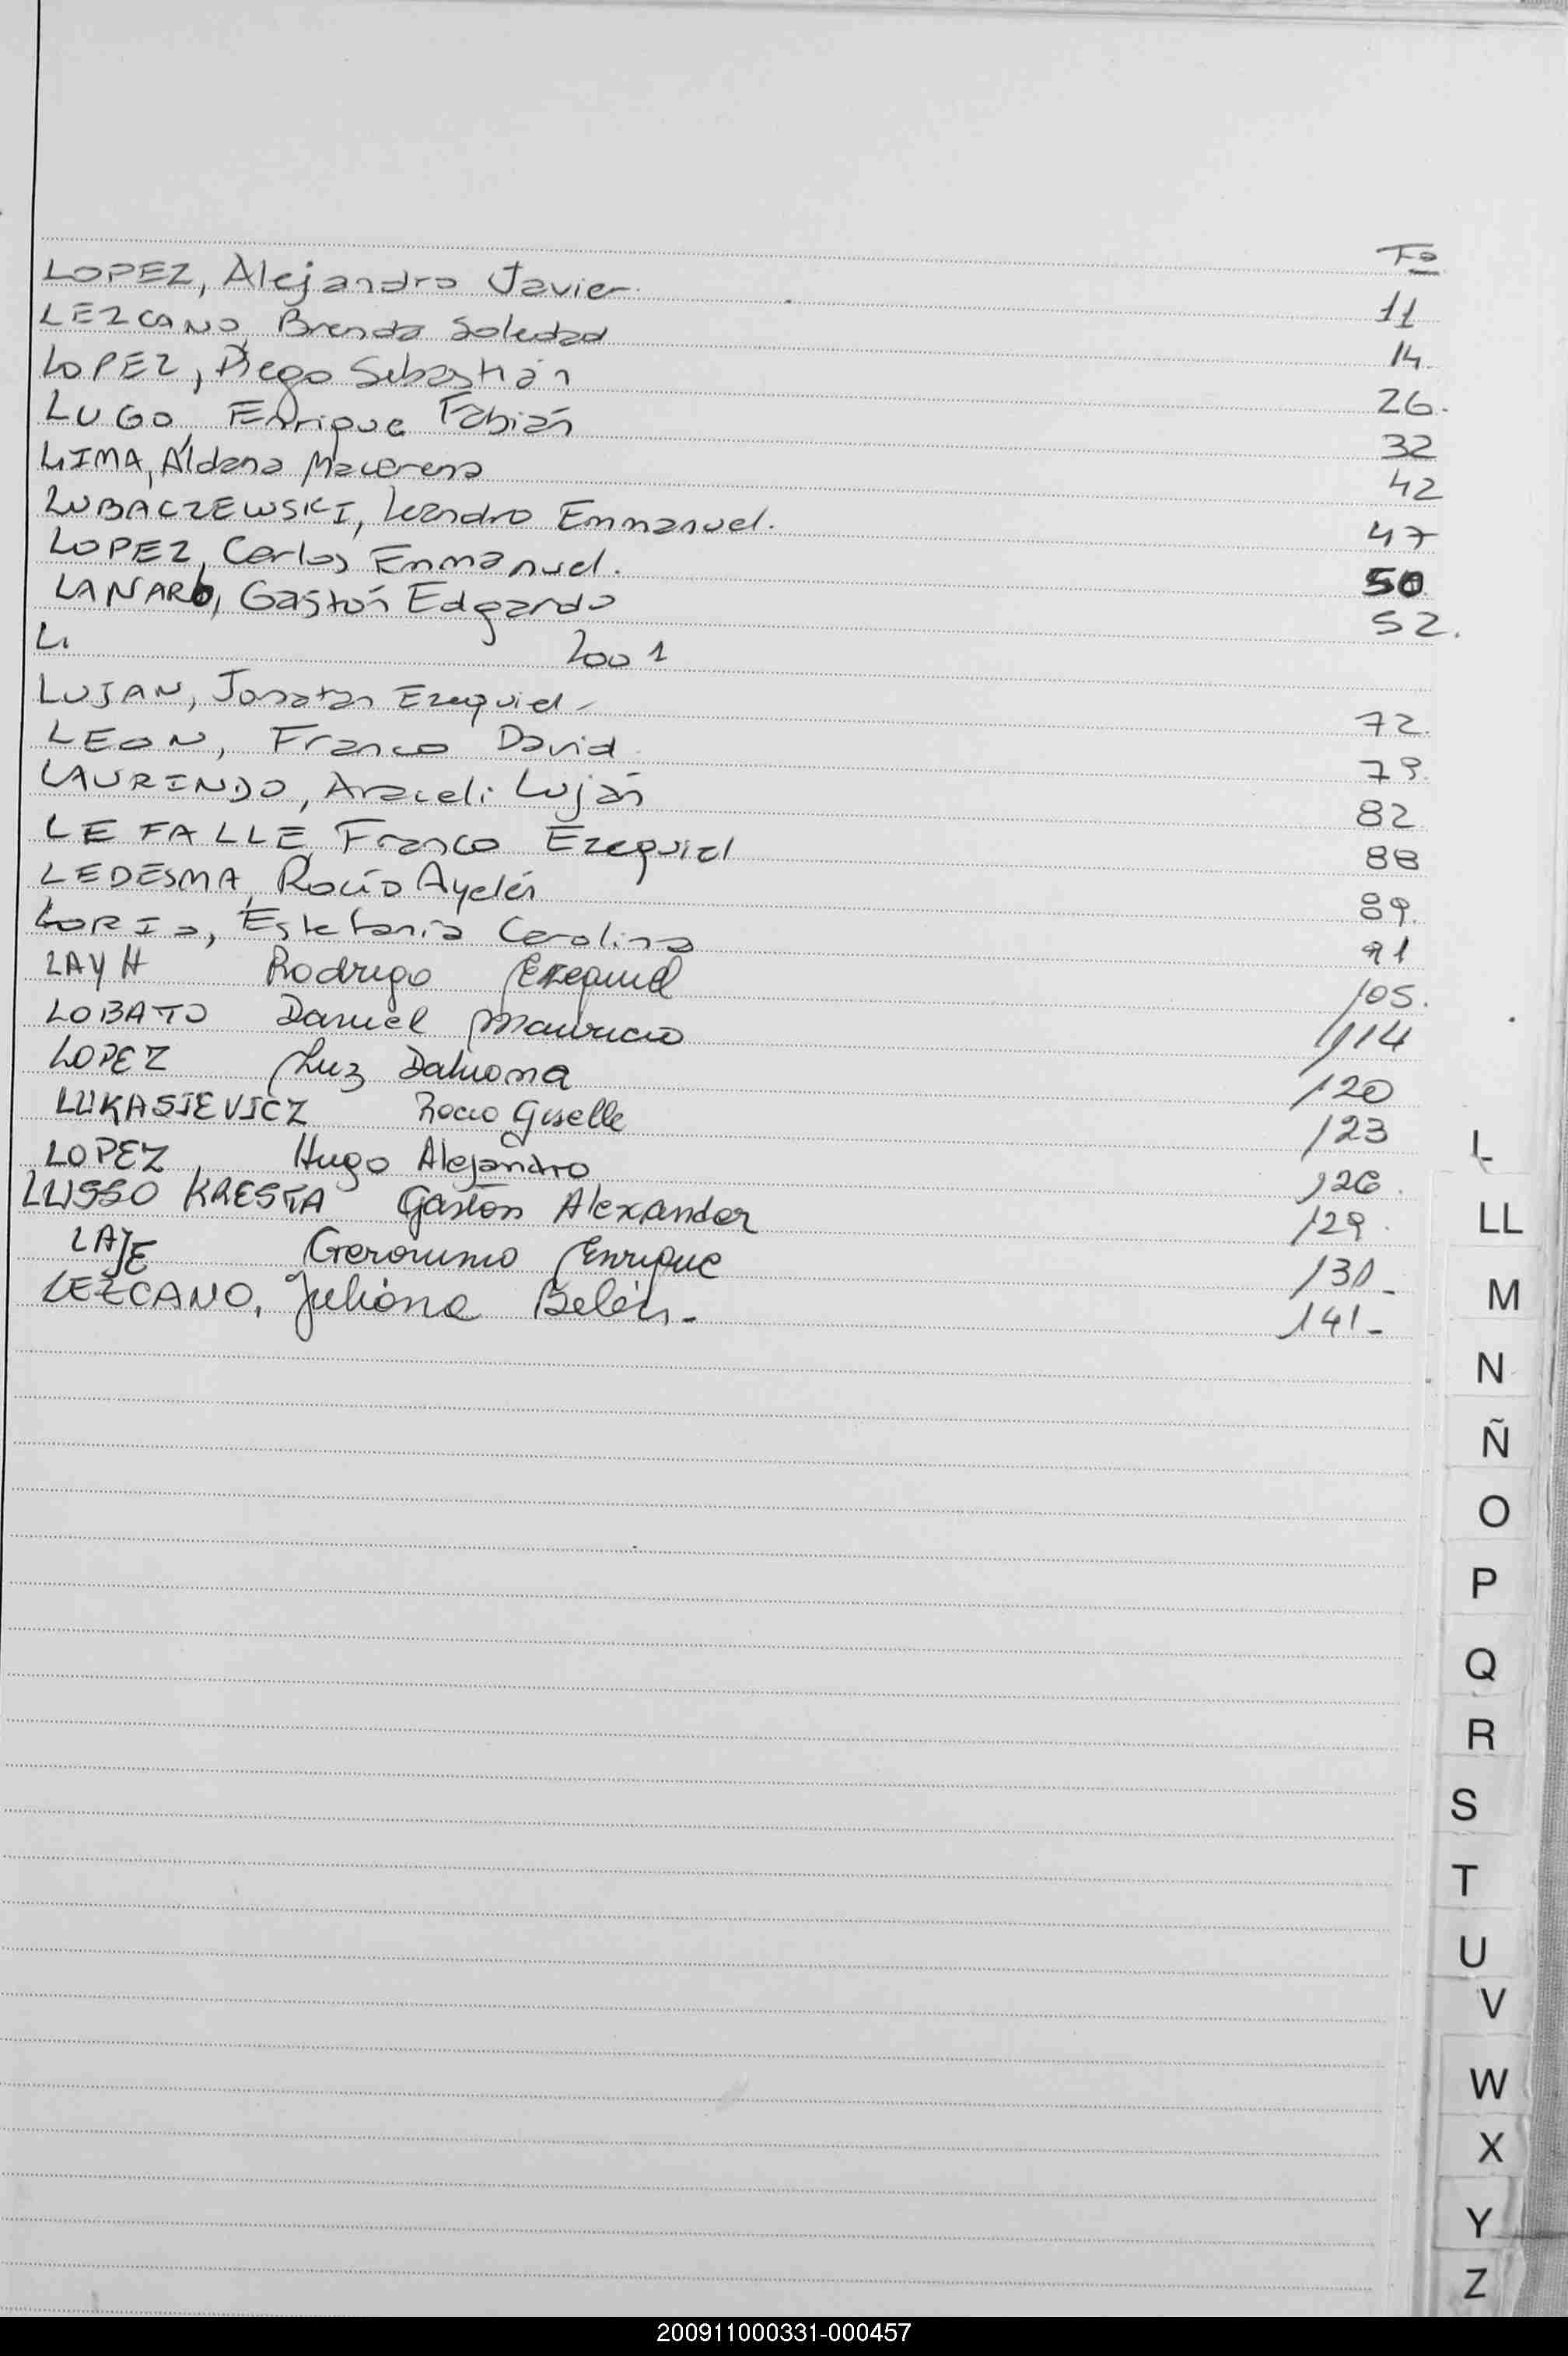 Fo
LOPEZ, Alejandro Javier. 11
LEZCANO, Brenda Soledad 14.
LOPEZ, Diego Sebastián 26.
LUGO, Enrique Fabián 32
LIMA, Aldana Macarena 42
LUBACZEWSKI, Leandro Emmanuel. 47
LOPEZ, Carlos Emmanuel. 50
LANARO, Gastón Edgardo 52.
L. 2001
LUJAN, Jonatan Ezequiel - 72.
LEON, Franco David 79.
LAURINDO, Araceli Luján 82
LE FALLE, Franco Ezequiel 88
LEDESMA, Rocío Ayelén 89.
Estefanía Carolina 91
LAYH Rodrigo Ezequiel 105.
LOBATO Daniel Mauricio 114
LOPEZ Luz Daiana 120
LUKASIEVICZ Rocio Giselle 123
LOPEZ, Hugo Alejandro 126.
LUSSO KRESTA Gaston Alexander 129.
LAJE Geronimo Enrique 131-
LEZCANO, Juliana Belén.- 141-
L
LL
M
N
Ñ
O
P
Q
R
S
T
U
V
W
X
Y
Z
200911000331-000457